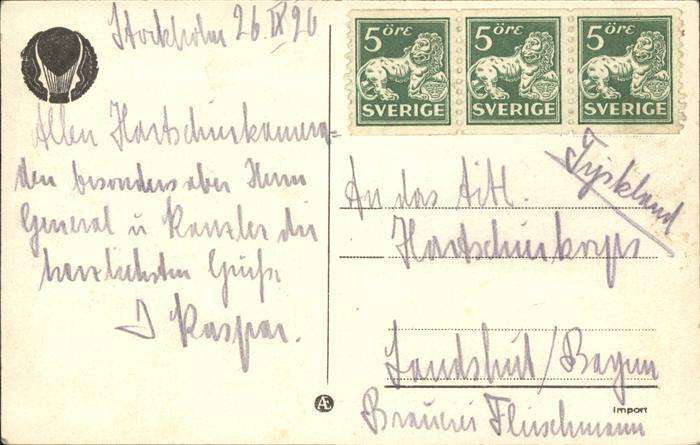 Stockholm 26 IX 26
Allen Hartschierkamera=
den besonders aber Herrn
General u Kanzler die
herzlichsten Grüße
J Kaspar.
5 ÖRE
SVERIGE
5 ÖRE
SVERIGE
5 ÖRE
SVERIGE
Tyskland
An das Titl.
Hartschierkorps
Landshut/Bayern
Brauerei Fleischmann
Import
AE